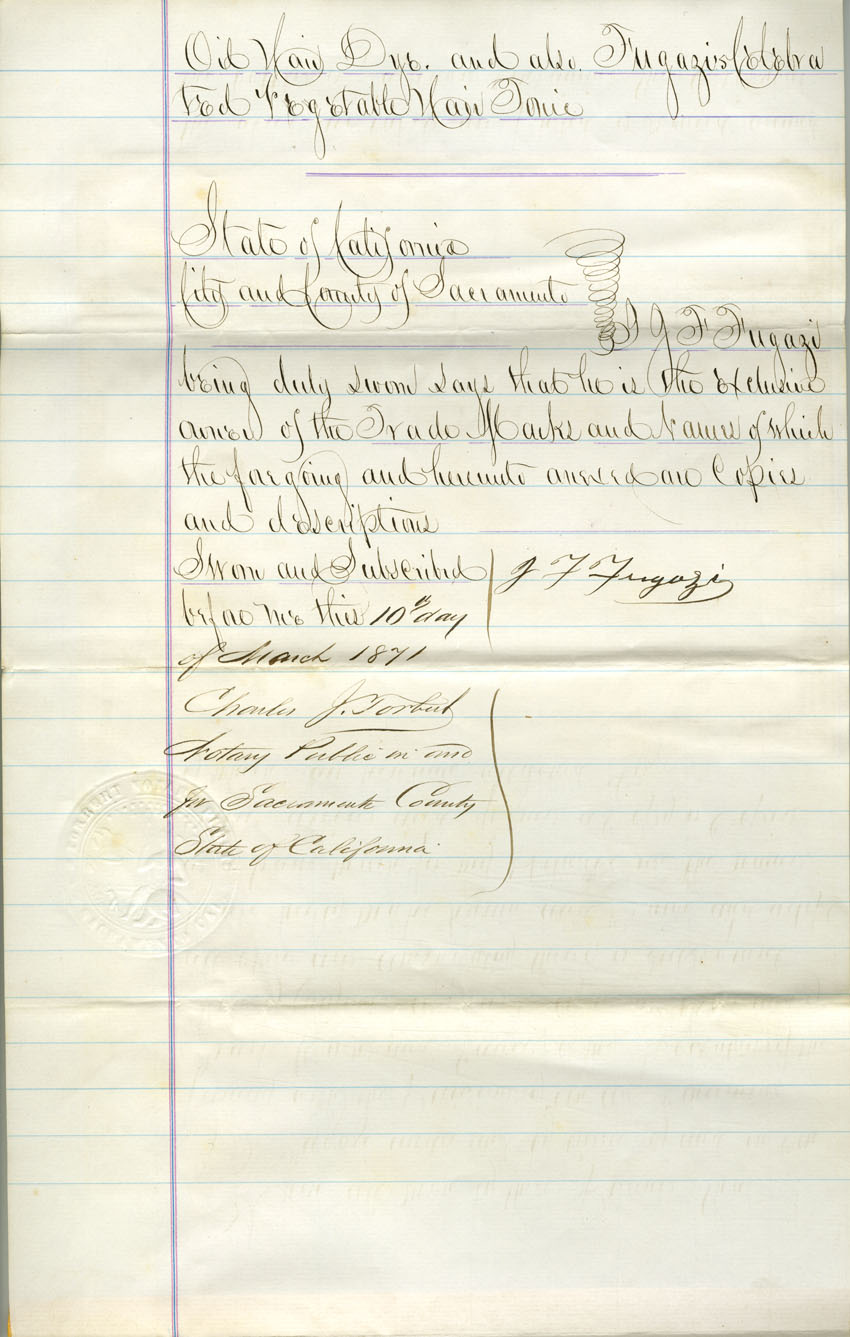 Oil Hair Dye. and also. Fugazis Celebra
ted Vegetable Hair Tonic
State of California
City and County of Sacramento
I J F Fugazi
being duly sworn says that he is the exclusive
owner of the Trade Marks and Names of which
the forgoing and hereunto anexed are Copies
and descriptions
Sworn and Subscribed
before me this 10th day
of March 1871
J F Fugazi
Charles J. Torbert
Notary Public in and
for Sacramento County
State of California